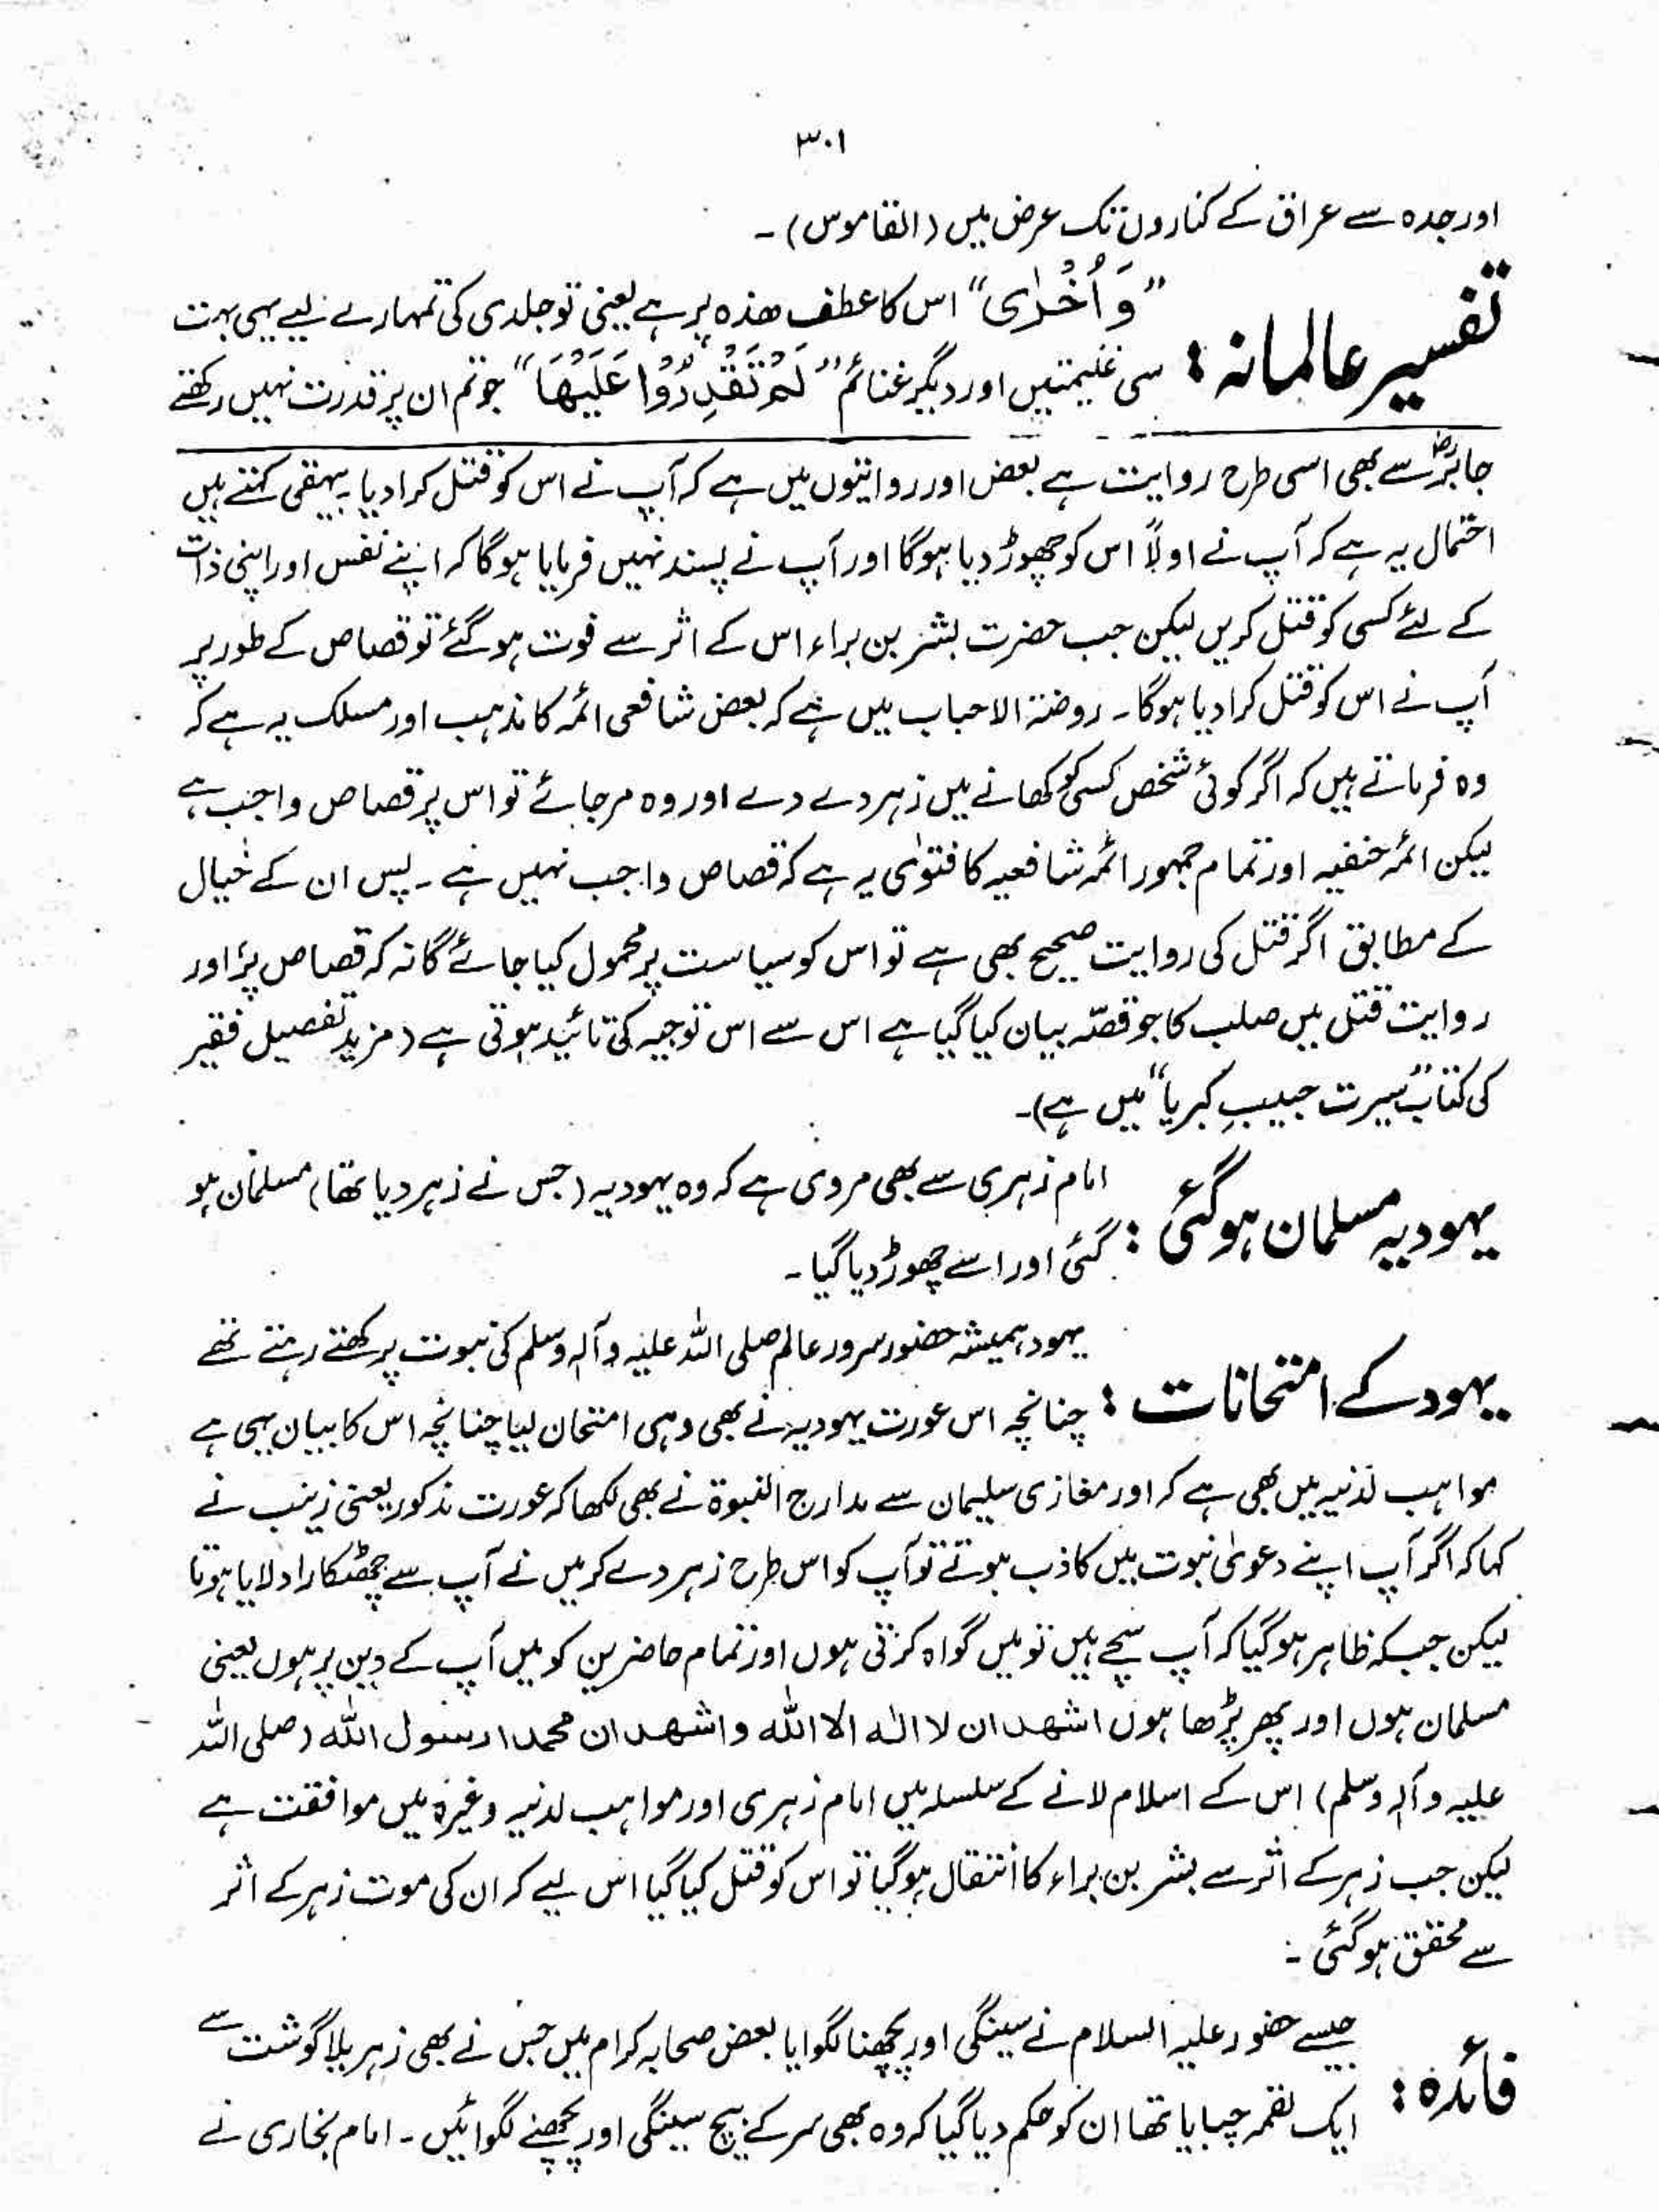 ۳۰۱
اور جدہ سے عراق کے کناروں تک عرض میں (القاموس)۔
تفسیر عالمانہ : "وَ اُخْرٰی" اس کا عطف ھذہ پر ہے یعنی تو جلدی کی تمہارے لیے یہی بہت
سی غنیمتیں اور دیگر غنائم "لَمْ تَقْدِرُوْا عَلَیْهَا" جو تم ان پر قدرت نہیں رکھتے
جابرؓ سے بھی اسی طرح روایت ہے بعض اور روایتوں میں ہے کہ آپ نے اس کو قتل کرا دیا۔ بیہقی کہتے ہیں
احتمال یہ ہے کہ آپ نے اولاً اس کو چھوڑ دیا ہوگا اور آپ نے پسند نہیں فرمایا ہوگا کہ اپنے نفس اور اپنی ذات
کے لئے کسی کو قتل کریں لیکن جب حضرت بشر بن براء اس کے اثر سے فوت ہو گئے تو قصاص کے طور پر
آپ نے اس کو قتل کرا دیا ہوگا۔ روضۃ الاحباب میں ہے کہ بعض شافعی ائمہ کا مذہب اور مسلک یہ ہے کہ
وہ فرماتے ہیں کہ اگر کوئی شخص کسی کو کھانے میں زہر دے دے اور وہ مر جائے تو اس پر قصاص واجب ہے
لیکن ائمہ حنفیہ اور تمام جمہور ائمہ شافعیہ کا فتوٰی یہ ہے کہ قصاص واجب نہیں ہے۔ پس ان کے خیال
کے مطابق اگر قتل کی روایت صحیح بھی ہے تو اس کو سیاست پر محمول کیا جائے گا نہ کہ قصاص پر اور
روایت قتل میں صلب کا جو قصّہ بیان کیا گیا ہے اس سے اس توجیہ کی تائید ہوتی ہے (مزید تفصیل فقیر
کی کتاب "سیرت حبیبِ کبریا" میں ہے)۔
یہودیہ مسلمان ہوگئی : امام زہری سے بھی مروی ہے کہ وہ یہودیہ (جس نے زہر دیا تھا) مسلمان ہو
گئی اور اسے چھوڑ دیا گیا۔
یہود کے امتحانات : یہود ہمیشہ حضور سرور عالم صلی اللہ علیہ وآلہ وسلم کی نبوت پرکھتے رہتے تھے
چنانچہ اس عورت یہودیہ نے بھی وہی امتحان لیا چنانچہ اس کا بیان یہی ہے
مواہب لدنیہ میں بھی ہے کہ اور مغازی سلیمان سے مدارج النبوۃ نے بھی لکھا کہ عورت مذکور یعنی زینب نے
کہا کہ اگر آپ اپنے دعوئٰ نبوت میں کاذب ہوتے تو آپ کو اس طرح زہر دے کر میں نے آپ سے چھٹکارا دلایا ہوتا
لیکن جبکہ ظاہر ہو گیا کہ آپ سچے ہیں تو میں گواہ کرتی ہوں اور تمام حاضرین کو میں آپ کے دین پر ہوں یعنی
مسلمان ہوں اور پھر پڑھا ہوں اشھد ان لا الہ الا اللہ واشھد ان محمدا رسول اللہ (صلی اللہ
علیہ وآلہ وسلم) اس کے اسلام لانے کے سلسلہ میں امام زہری اور مواہب لدنیہ وغیرہ میں موافقت ہے
لیکن جب زہر کے اثر سے بشر بن براء کا انتقال ہو گیا تو اس کو قتل کیا گیا اس لیے کہ ان کی موت زہر کے اثر
سے محقق ہو گئی ۔
فائدہ : جیسے حضور علیہ السلام نے سینگی اور پچھنا لگوایا بعض صحابہ کرام میں جس نے بھی زہر یلا گوشت سے
ایک لقمہ چبایا تھا ان کو حکم دیا گیا کہ وہ بھی سر کے بیچ سینگی اور پچھنے لگوائیں۔ امام بخاری نے